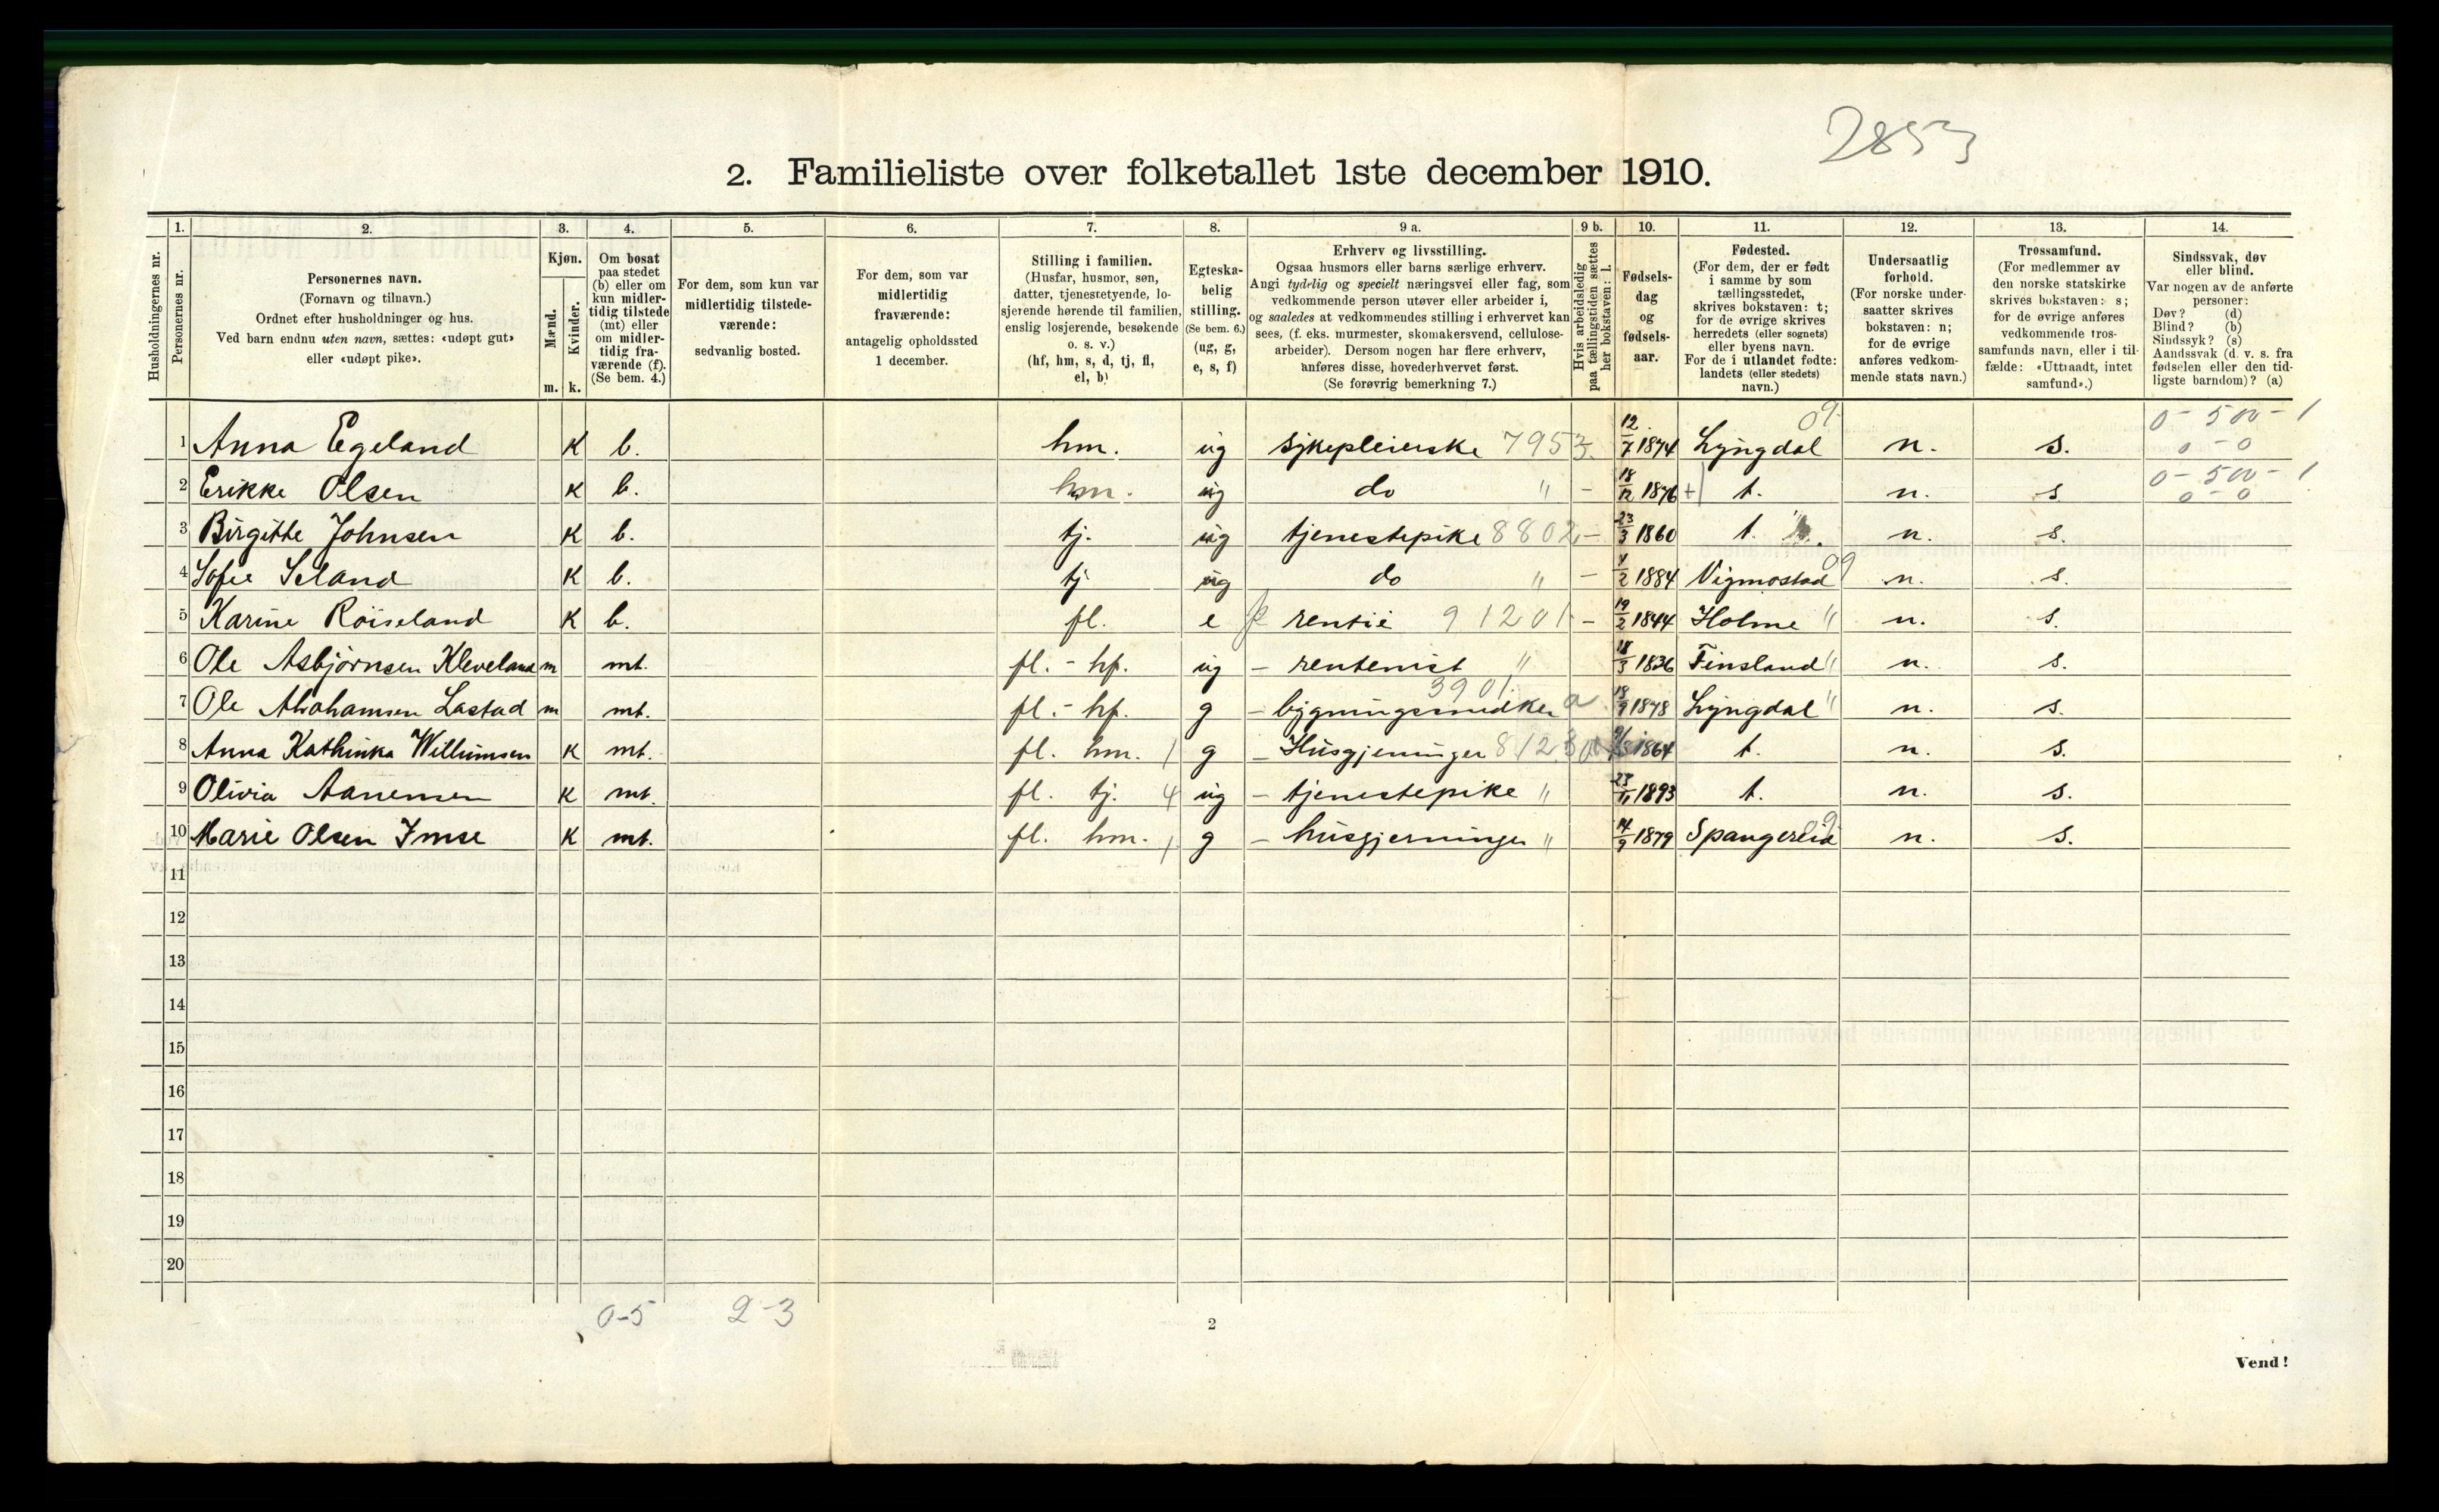 2853
2. Familieliste over folketallet 1ste december 1910.
Husholdningernes nr.
1. Personernes nr.
2. Personernes navn. (Fornavn og tilnavn.) Ordnet efter husholdninger og hus. Ved barn endnu uten navn, sættes: «udøpt gut» eller «udøpt pike».
3. Kjøn. Mænd. m. Kvinder. k.
4. Om bosat paa stedet (b) eller om kun midlertidig tilstede (mt) eller om midlertidig fraværende (f). (Se bem. 4.)
5. For dem, som kun var midlertidig tilstedeværende: sedvanlig bosted.
6. For dem, som var midlertidig fraværende: antagelig opholdssted 1 december.
7. Stilling i familien. (Husfar, husmor, søn, datter, tjenestetyende, losjerende hørende til familien, enslig losjerende, besøkende o. s. v.) (hf, hm, s, d, tj, fl, el, b)
8. Egteskabelig stilling. (Se bem. 6.) (ug, g, e, s, f)
9 a. Erhverv og livsstilling. Ogsaa husmors eller barns særlige erhverv. Angi tydelig og specielt næringsvei eller fag, som vedkommende person utøver eller arbeider i, og saaledes at vedkommendes stilling i erhvervet kan sees, (f. eks. murmester, skomakersvend, cellulosearbeider). Dersom nogen har flere erhverv, anføres disse, hovederhvervet først. (Se forøvrig bemerkning 7.)
9 b. Hvis arbeidsledig paa tællingstiden sættes her bokstaven: l.
10. Fødselsdag og fødselsaar.
11. Fødested. (For dem, der er født i samme by som tællingsstedet, skrives bokstaven: t; for de øvrige skrives herredets (eller sognets) eller byens navn. For de i utlandet fødte: landets (eller stedets) navn.)
12. Undersaatlig forhold. (For norske undersaatter skrives bokstaven: n; for de øvrige anføres vedkommende stats navn.)
13. Trossamfund. (For medlemmer av den norske statskirke skrives bokstaven: s; for de øvrige anføres vedkommende trossamfunds navn, eller i tilfælde: «Uttraadt, intet samfund».)
14. Sindssvak, døv eller blind. Var nogen av de anførte personer: Døv? (d) Blind? (b) Sindssyk? (s) Aandssvak (d. v. s. fra fødselen eller den tidligste barndom)? (a)
1 Anna Egeland K b. hm. ug sykepleierske 7953 12/7 1874 Lyngdal 09 n. s. 0-500-1 0-0
2 Erikke Olsen K b. hm. ug do " - 18/12 1876 + t. n. s 0-500-1 0-0
3 Birgitte Johnsen K b. tj. ug tjenestepike 8802 - 23/3 1860 t. n. s.
4 Sofie Seland K b. tj ug do " - 4/2 1884 Vigmostad 09 n. s.
5 Karine Röiseland K b. fl. e rentie 91201 - 19/2 1844 Holme " n. s.
6 Ole Asbjörnsen Kleveland m mt. fl. - hf. ug - rentenist " 18/3 1836 Finsland " n. s.
7 Ole Abrahamsen Lastad m mt. fl. - hf. g - bygningssnedker 3901 a 18/9 1878 Lyngdal " n. s.
8 Anna Kathinka Willumsen K mt. fl. hm. 1 g - Husgjerninger 812 1864 t. n. s.
9 Olivia Aanensen K mt. fl. tj. 4 ug - tjenestepike " 23/11 1893 t. n. s.
10 Marie Olsen Imse K mt. fl. hm. 1 g - husgjerninger " 14/9 1879 Spangereid n. s.
11
12
13
14
15
16
17
18
19
20
0-5 2-3
2
Vend!